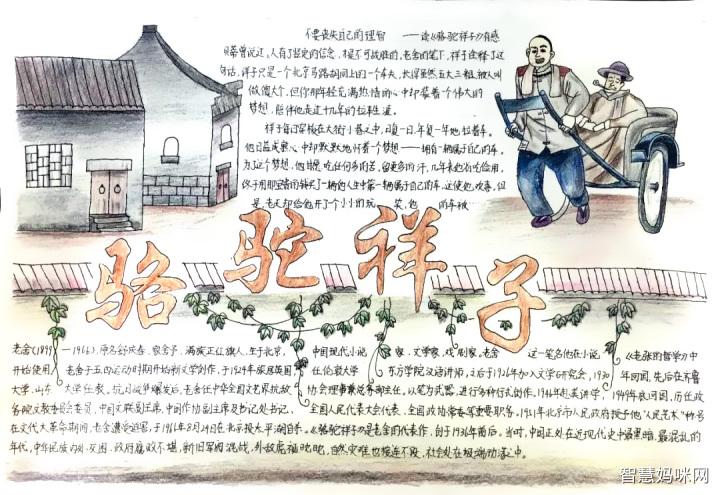 不要丧失自己的理智 ——读《骆驼祥子》有感
贝蒂曾说过，人有了坚定的信念，才是不可战胜的，老舍的笔下，祥子诠释了这
句话，祥子只是一个北京马路胡同上的一个车夫，长得虽然五大三粗，被人叫
做傻大个，但你那年轻充满热情的心中却装着一个伟大的
梦想，陪伴他走过十几年的拉车生涯。
祥子每日穿梭在大街小巷之中，日复一日，年复一年地拉着车。
他日益成熟，心中却默默地怀着个梦想——拥有一辆属于自己的车。
为了这个梦想，他甘愿吃任何多的苦，留更多的汗，几年来省吃俭用，
终于用那坚苦的钱买了一辆他人生中第一辆属于自己的车，这使他欢喜，但
是，老天却给他开了个小小的玩笑，他的车被
骆驼祥子
老舍(1899—1966)，原名舒庆春，字舍予，满族正红旗人，生于北京，中国现代小说家，文学家，戏剧家，老舍这一笔名他在小说《老张的哲学》中
开始使用，老舍于五四运动时期开始新文学创作，于1924年旅居英国任伦敦大学东方学院汉语讲师，之后于1926年加入文学研究会，1930年回国，先后在齐鲁
大学，山东大学任教。抗日战争爆发后，老舍任中华全国文艺界抗敌协会理事兼总务部主任，以笔为武器，进行多种形式创作，1946年赴美讲学，1949年底回国，历任政
务院文教委员会委员，中国文联副主席，中国作协副主席及书记处书记，全国人民代表大会代表，全国政协常委等重要职务。1951年北京市人民政府授予他"人民艺术"称号
在文化大革命期间，老舍遭受迫害，于1966年8月24日在北京投太平湖自杀。《骆驼祥子》是老舍的代表作，创于1936年前后。当时，中国正处在近现代史中最黑暗、最混乱的
年代，中华民族内外交困，政府腐败不堪，新旧军阀混战，外敌虎视眈眈，自然灾难也接连不段，社会处在极端动荡中。
智慧妈咪网